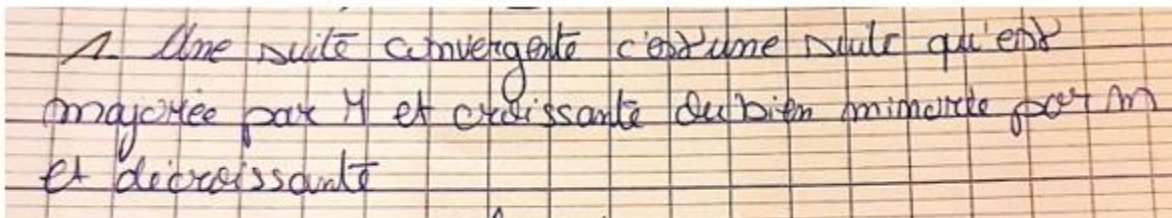 1. Une suite convergente c'est une suite qu'est
majorée par M et croissante ou bien minorée par m
et décroissante